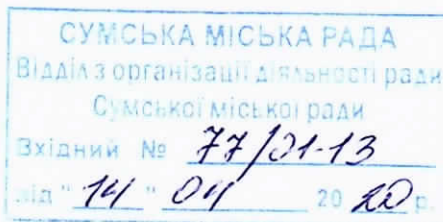 СУМСЬКА МІСЬКА РАДА
Відділ з організації діяльності ради
Сумської міської ради
Вхідний № 77/01-13
від "14" 04 2020 р.